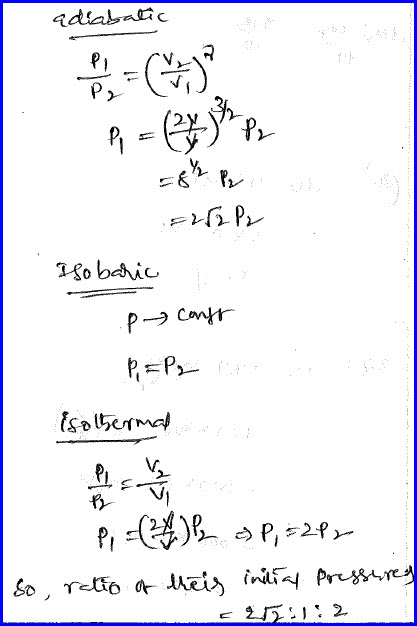 adiabatic
P₁/P₂ = (V₂/V₁)^γ
P₁ = (2V/V)^3/2 P₂
= 8^1/2 P₂
= 2√2 P₂
Isobaric
P → const
P₁ = P₂
isothermal
P₁/P₂ = V₂/V₁
P₁ = (2V/V) P₂ ⇒ P₁ = 2P₂
So, ratio of their initial pressures
= 2√2 : 1 : 2